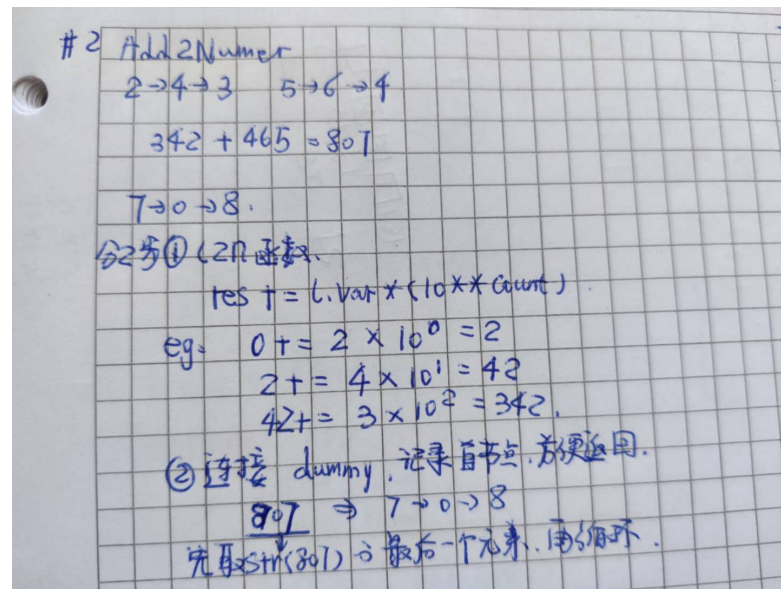 #2 Add 2Numer
2→4→3 5→6→4
342 + 465 = 807
7→0→8.
分2步① L2n 函数.
res += l.var * (10 ** count)
eg: 0 += 2 × 10⁰ = 2
2 += 4 × 10¹ = 42
42 += 3 × 10² = 342.
② 连接 dummy, 记录首节点, 方便返回.
807 ⇒ 7→0→8
先取str(807) 的最后一个元素, 再循环.